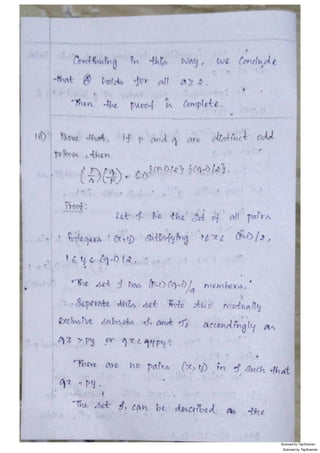 Continuing in this way, we conclude
that holds for all a ≥ 2.
Then the proof is complete.
18) Prove that, If p and q are distinct odd
primes, then
(p/q)(q/p) = (-1)^{(p-1)/2}{(q-1)/2}.
Proof:
Let S be the set of all pairs
Integers (x,y) satisfying 1≤x≤ (p-1)/2,
1≤y≤(q-1)/2.
The set S has (p-1)(q-1)/4 members.
Seperate this set into two mutually
exclusive subsets S1 and S2 accordingly as
qx > py or qx < py
There are no pairs (x,y) in S such that
qx = py.
The set S1 can be described as the
Scanned by TapScanner
Scanned by TapScanner